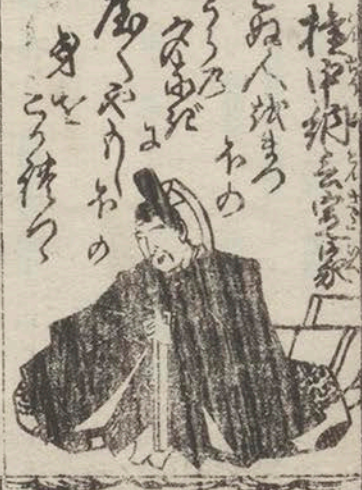 権中納言定家
こぬ人をまつ
ほの
うらの
夕なぎ
に
やくやもしほ
の
身も
こがれつゝ